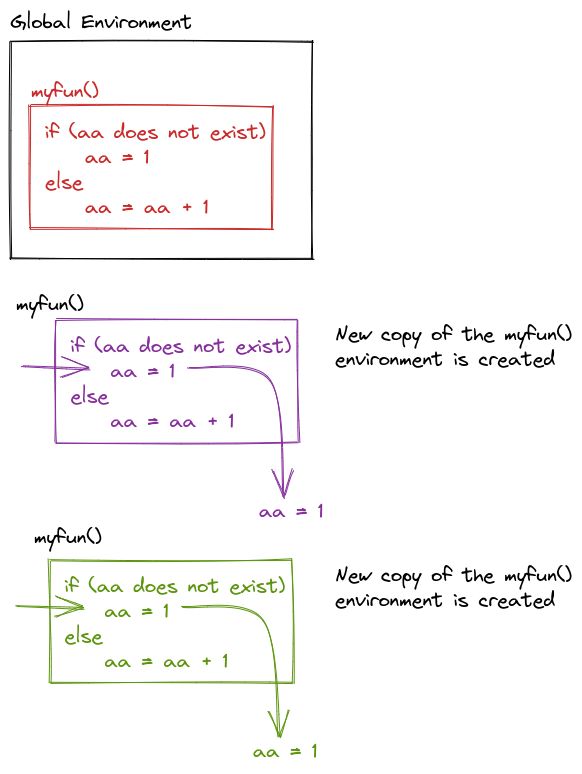 Global Environment
myfun()
if (aa does not exist)
aa = 1
else
aa = aa + 1
myfun()
if (aa does not exist)
aa = 1
else
aa = aa + 1
New copy of the myfun()
environment is created
aa = 1
myfun()
if (aa does not exist)
aa = 1
else
aa = aa + 1
New copy of the myfun()
environment is created
aa = 1